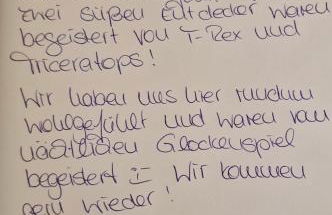 zwei süßen Entdecker waren
begeistert von T-Rex und
Triceratops!
Wir haben uns hier rundum
wohlgefühlt und waren vom
nächtlichen Glockenspiel
begeistert :- Wir kommen
gern wieder!